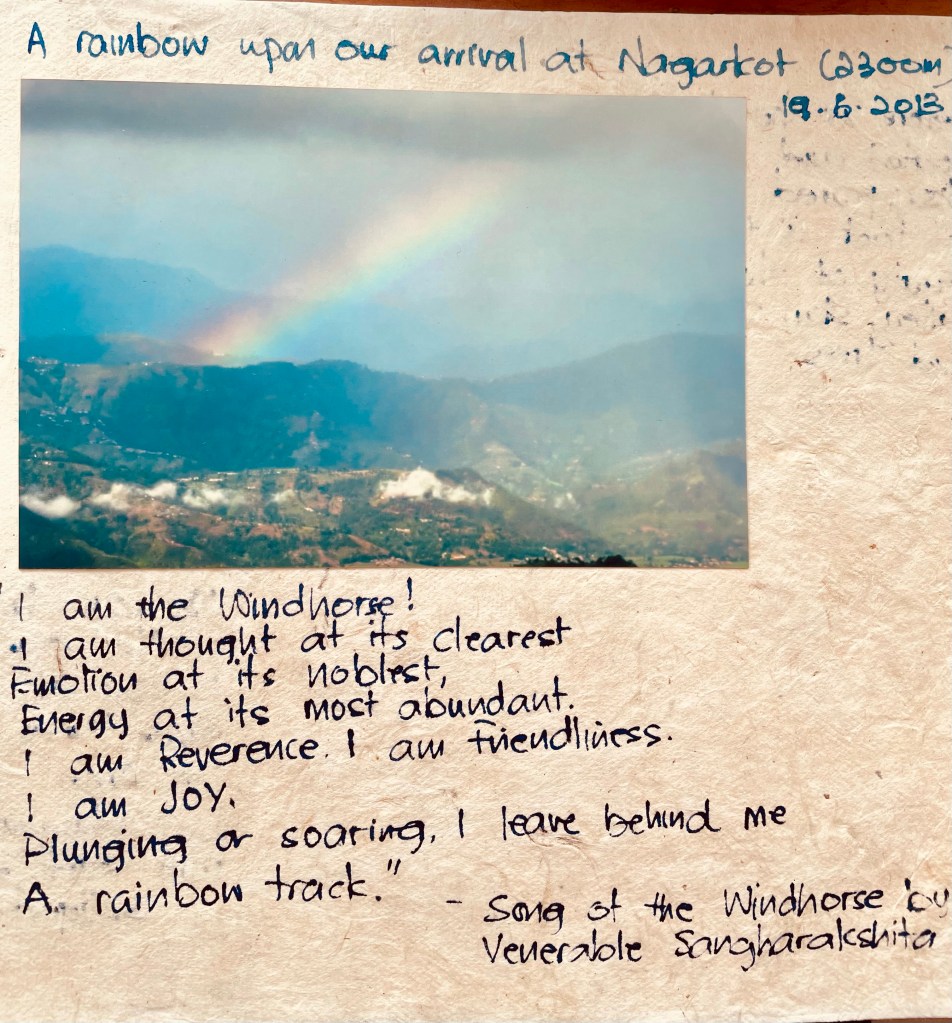 A rainbow upon our arrival at Nagarkot (2300m)
19.6.2013
"I am the Windhorse!
I am thought at its clearest
Emotion at its noblest,
Energy at its most abundant.
I am Reverence. I am Friendliness.
I am JOY.
Plunging or soaring, I leave behind me
A rainbow track."
- Song of the Windhorse by
Venerable Sangharakshita